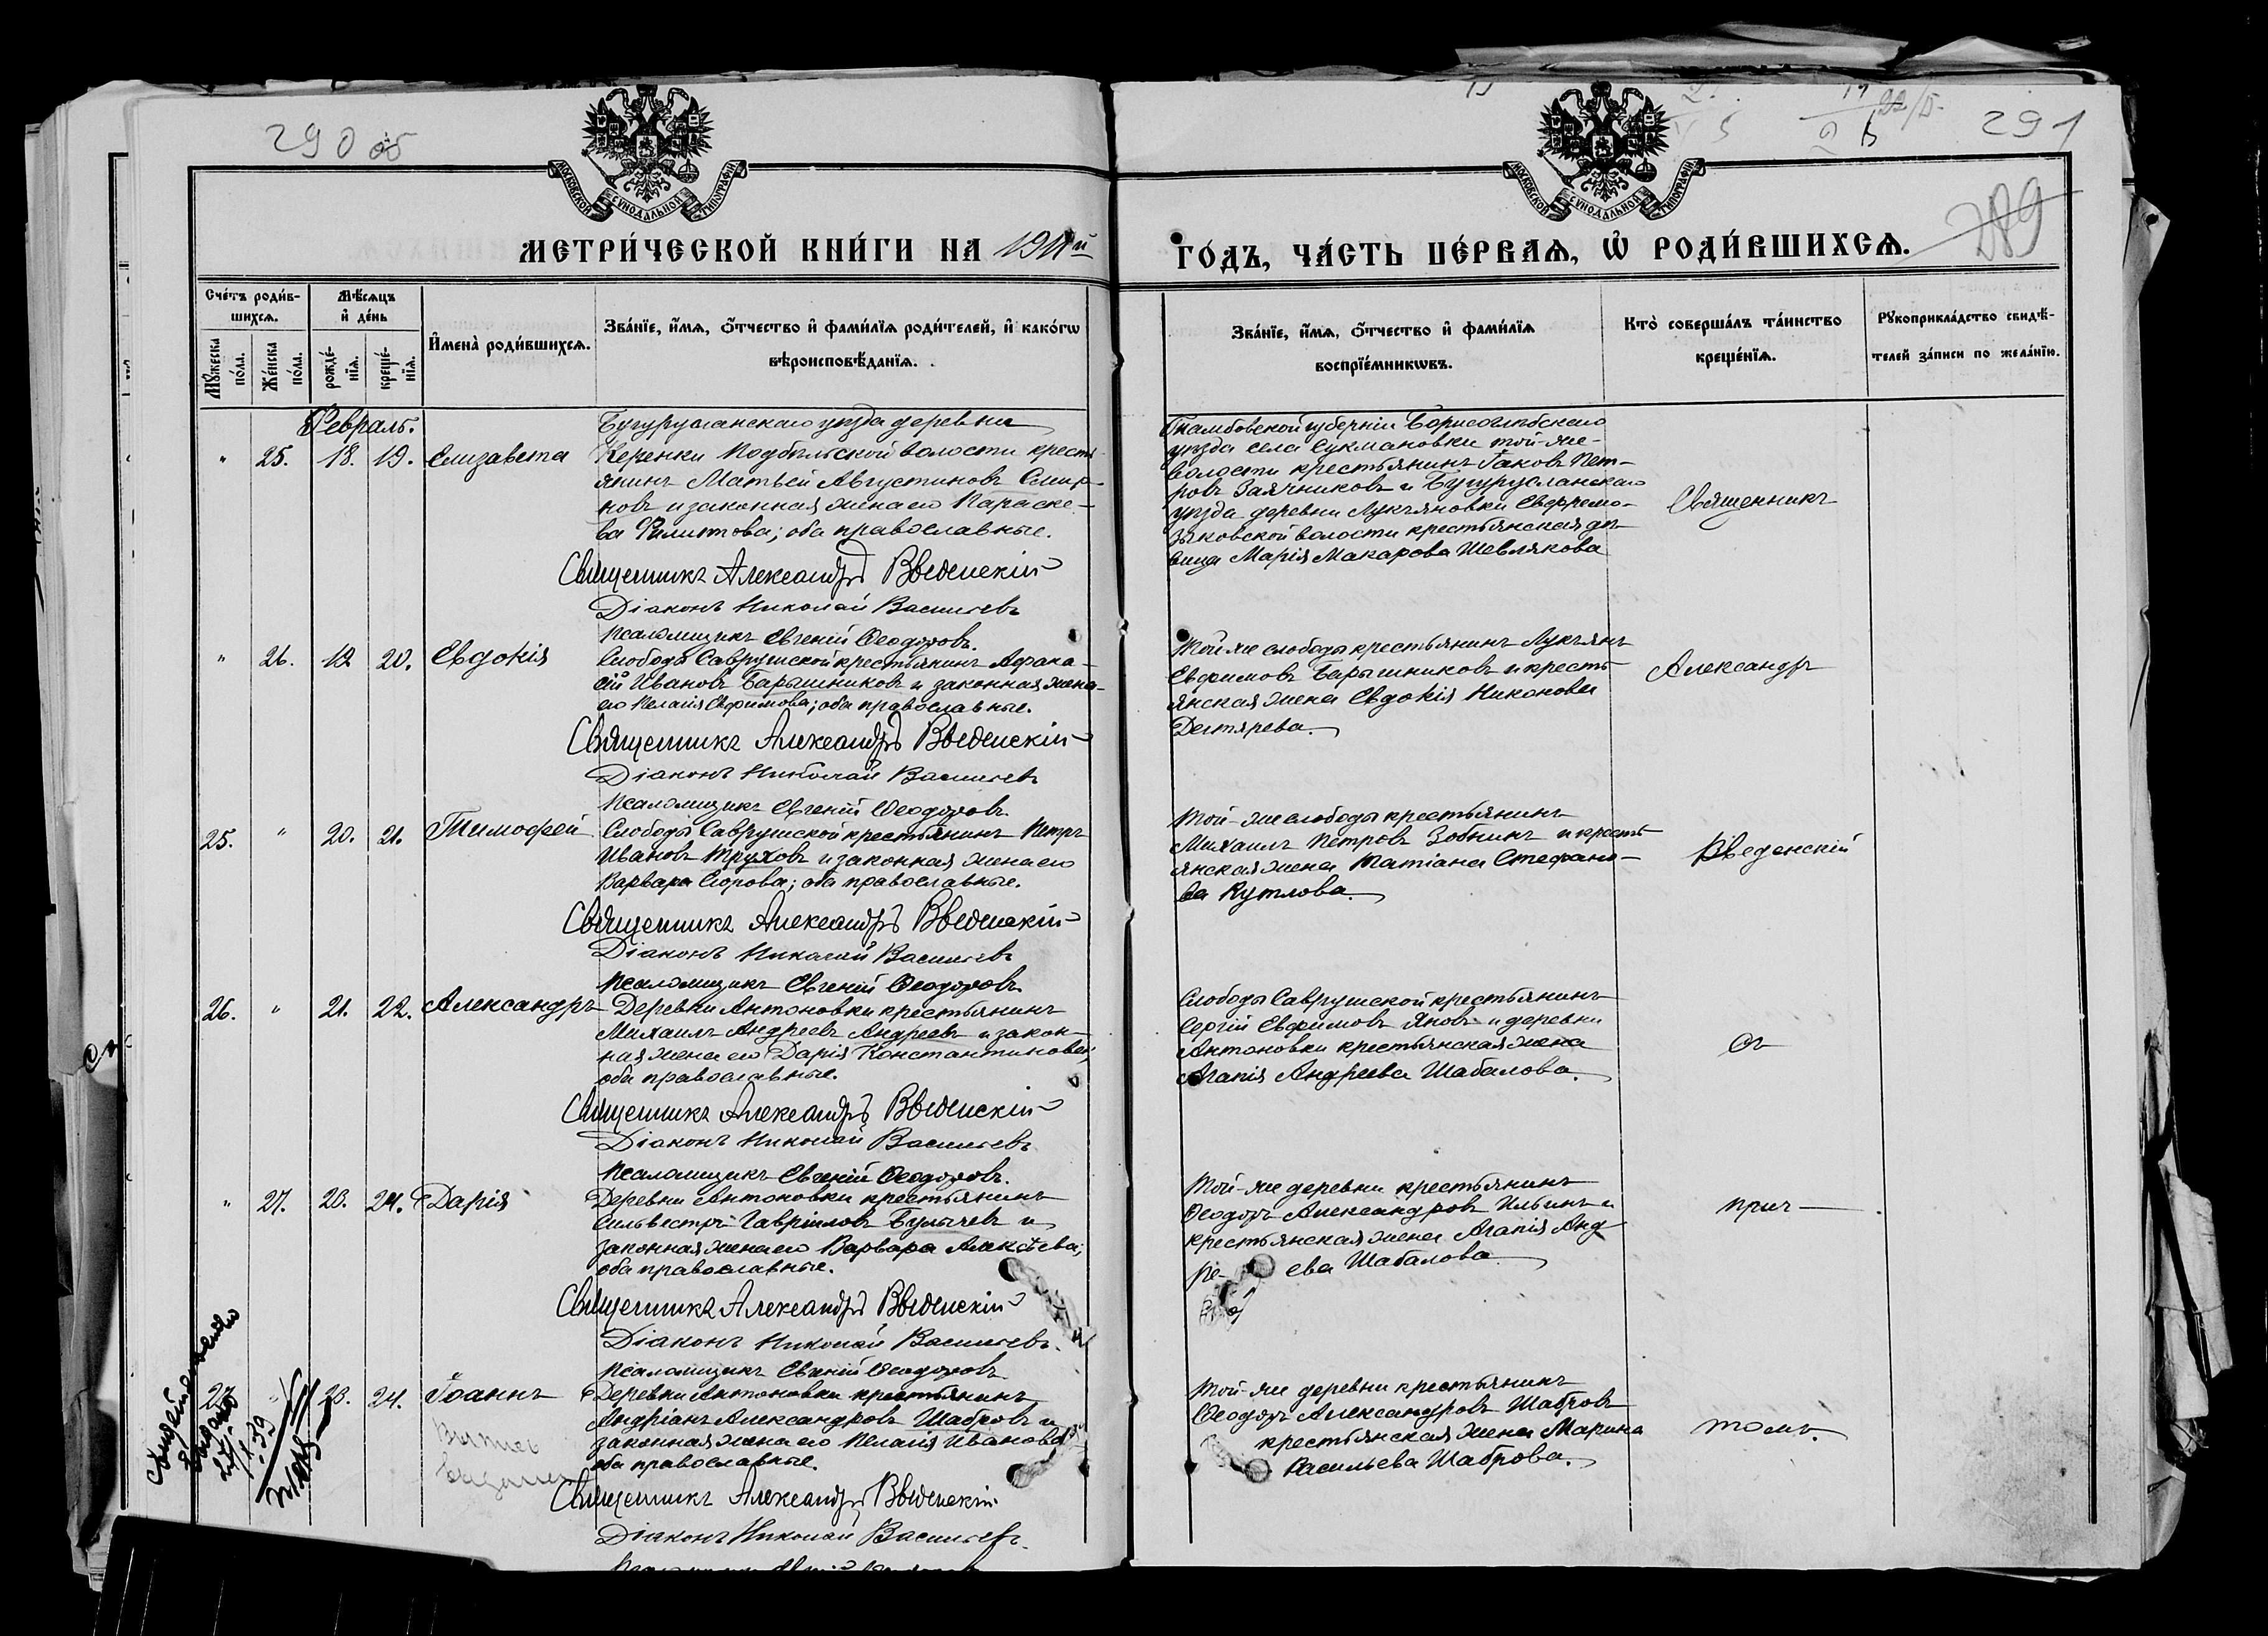 290 об
291
289
МОСКОВСКОЙ СѴНОДАЛЬНОЙ ТИПОГРАФІИ
МОСКОВСКОЙ СѴНОДАЛЬНОЙ ТИПОГРАФІИ
МЕТРИ́ЧЕСКОЙ КНИ́ГИ НА 1911й
ГО́ДЪ, ЧА́СТЬ ПЕ́РВАѦ, Ѡ҆ РОДИ́ВШИХСѦ.
Сче́тъ роди́в-
шихсѧ.
Мꙋ́жеска по́ла.
Же́нска по́ла.
Мѣ́сѧцъ
и҆ де́нь
рожде́-
нїѧ.
креще́-
нїѧ.
И҆мена̀ роди́вшихсѧ.
Зва́нїе, и҆́мѧ, ѻ҆́тчество и҆ фами́лїѧ роди́телей, и҆ како́гѡ
вѣроисповѣ́данїѧ.
Зва́нїе, и҆́мѧ, ѻ҆́тчество и҆ фами́лїѧ
воспрїе́мникѡвъ.
Кто̀ соверша́лъ та́инство
креще́нїѧ.
Рꙋкоприкла́дство свидѣ́-
телей за́писи по жела́нїю.
Февраль.
" 25. 18. 19. Елизавета
Бугурусланскаго уѣзда деревни
Керенки Подбѣльской волости кресть-
янинъ Матѳей Августиновъ Смир-
новъ и законная жена его Параске-
ва Филиппова; оба православные.
Священникъ Александръ Введенскій
Діаконъ Николай Васильевъ
Псаломщикъ Евгеній Ѳеодоровъ.
Тамбовской губерніи Борисоглѣбскаго
уѣзда села Сукмановки той-же-
волости крестьянинъ Іаковъ Пет-
ровъ Заячниковъ и Бугурусланскаго
уѣзда деревни Лукьяновки Ефремо-
Зыковской волости крестьянская дѣ-
вица Марія Макарова Шевлякова
Священникъ
" 26. 19 20. Евдокія
Слободы Саврушской крестьянинъ Афана-
сій Ивановъ Барышниковъ и законная жена-
его Пелагія Евфимова; оба православные.
Священникъ Александръ Введенскій
Діаконъ Николай Васильевъ
Псаломщикъ Евгеній Ѳеодоровъ
Той же слободы крестьянинъ Лукьянъ
Евфимовъ Барышниковъ и кресть-
янская жена Евдокія Никонова
Дегтярева.
Александръ
25. " 20. 21. Тимофей
Слободы Саврушской крестьянинъ Петръ
Ивановъ Труховъ и законная жена его
Варвара Егорова; оба православные.
Священникъ Александръ Введенскій
Діаконъ Николай Васильевъ
Псаломщикъ Евгеній Ѳеодоровъ
Той-же слободы крестьянинъ
Михаилъ Петровъ Зобнинъ и кресть-
янская жена Татіана Стефано-
ва Кутлова.
Введенскій
26. " 21. 22. Александръ
Деревни Антоновки крестьянинъ
Михаилъ Андреевъ Андреевъ и закон-
ная жена его Дарія Константинова;
оба православные.
Священникъ Александръ Введенскій
Діаконъ Николай Васильевъ
Псаломщикъ Евгеній Ѳеодоровъ.
Слободы Саврушской крестьянинъ
Сергій Евфимовъ Яновъ и деревни
Антоновки крестьянская жена
Агапія Андреева Шабалова.
съ
" 27. 23. 24. Дарія
Деревни Антоновки крестьянинъ
Сильвестръ Гавріиловъ Булычевъ и
законная жена его Варвара Алексѣева;
оба православные.
Священникъ Александръ Введенскій
Діаконъ Николай Васильевъ.
Псаломщикъ Евгеній Ѳеодоровъ
Той-же деревни крестьянинъ
Ѳеодоръ Александровъ Ильинъ и
крестьянская жена Агапія Анд-
ре- ева Шабалова
прич-
27. " 23. 24. Іоаннъ
Деревни Антоновки крестьянинъ
Андріанъ Александровъ Шабровъ и
законная жена его Пелагія Иванова
оба православные.
Священникъ Александръ Введенскій
Діаконъ Николай Васильевъ.
Той-же деревни крестьянинъ
Ѳеодоръ Александровъ Шабровъ
крестьянская жена Марина
Васильева Шаброва.
томъ.